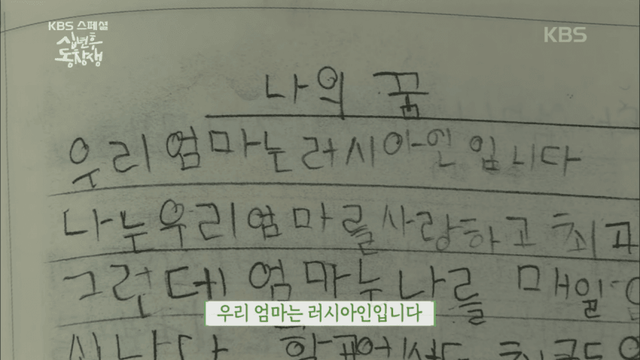 KBS 스페셜
십년후
동창생
KBS
나의 꿈
우리 엄마는 러시아인 입니다
나는 우리 엄마를 사랑하고
그런데 엄마는 나를 매일
우리 엄마는 러시아인입니다